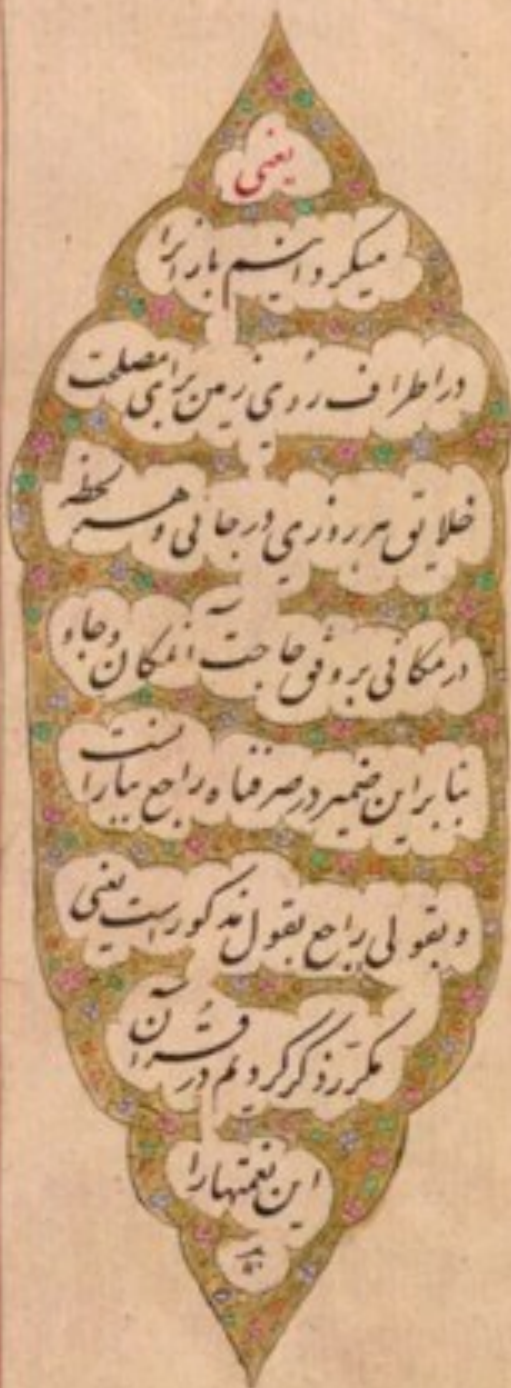 یعنی
میگردانیم بارانرا
در اطراف روی زمین برای مصلحت
خلایق هر روزی در جائی و هر لحظه
در مکانی بر وفق حاجت آنمکان و جاه
بنابراین ضمیر در صرفناه راجع بباران است
و بقولی راجع بقول مذکور است یعنی
مکرّر ذکر کردیم در قرآن
این نعمتهارا